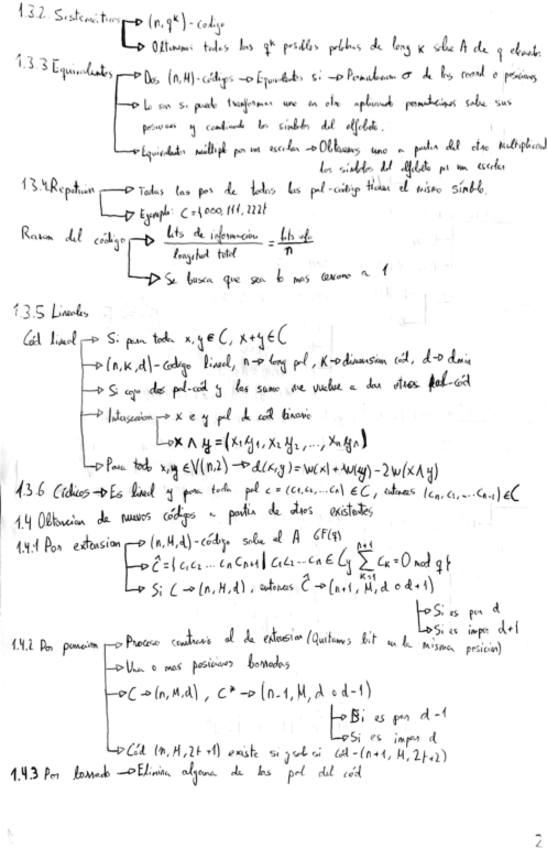 1.3.2. Sistemáticos → (n, q^k) - código
→ Obtenemos todas las q^k posibles palabras de long k sobre A de q elements
1.3.3 Equivalentes → Dos (n, M)-códigos → Equivalentes si → Permutacion σ de las coord o posiciones
→ Lo son si puedo transformar uno en otro aplicando permutaciones sobre sus
posiciones y cambiando los símbolos del alfabeto.
→ Equivalentes múltipl por un escalar → Obtenemos uno a partir del otro multiplicand
los símbolos del alfabeto por un escalar
1.3.4. Repetición → Todas las pos de todas las pal-código tienen el mismo símblo.
→ Ejemplo: C={000, 111, 222}
Razon del código → bits de información / longitud total = bits info / n
→ Se busca que sea lo mas cercano a 1
1.3.5 Lineales
Cód lineal → Si para toda x, y ∈ C, x+y ∈ C
→ (n, k, d)-codigo lineal, n → long pal, k → dimension cód, d → dmin
→ Si cojo dos pal-cód y las sumo me vuelve a dar otras pal-cód
→ Interseccion → x e y pal de cod binario
→ x ∧ y = (x₁y₁, x₂y₂, ..., xₙyₙ)
→ Para todo x, y ∈ V(n,2) → d(x,y) = w(x) + w(y) - 2w(x∧y)
1.3.6 Cíclicos → Es lineal y para toda pal c = (c₁, c₂, ... cₙ) ∈ C, entonces (cₙ, c₁, ... cₙ₋₁) ∈ C
1.4 Obtencion de nuevos códigos a partir de otros existentes
1.4.1 Por extension → (n, M, d)-código sobre el A GF(q)
→ Ĉ = {c₁c₂ ... cₙcₙ₊₁ | c₁c₂ ... cₙ ∈ C y ∑_{k=1}^{n+1} c_k = 0 mod q}
→ Si C → (n, M, d), entonces Ĉ → (n+1, M, d o d+1)
→ Si es par d
→ Si es impar d+1
1.4.2 Por puncion → Proceso contrario al de extension (Quitamos bit en la misma posicion)
→ Una o mas posiciones borradas
→ C → (n, M, d), C* → (n-1, M, d o d-1)
→ Si es par d-1
→ Si es impar d
→ Cód (n, M, 2t+1) existe si y solo si cód-(n+1, M, 2t+2)
1.4.3 Por borrado → Elimina alguna de las pal del cód
2